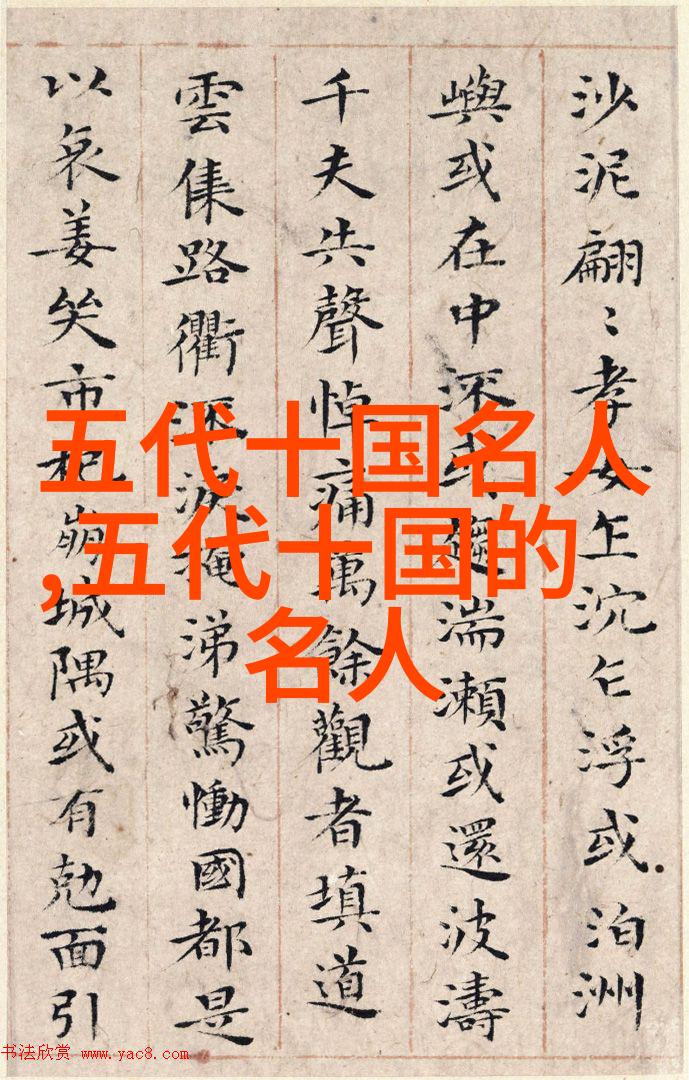 沙泥翩〻孝女乍沉乍浮或泊洲
嶼或在中深或趨湍瀨或還波濤
千夫共聲悼痛萬餘觀者填道
雲集路衢深淚掩涕驚慟國都是
以哀姜哭市杞崩城隅或有勉面引
五代十国名人
,五代十国的
名人
书法欣赏 www.yac8.com